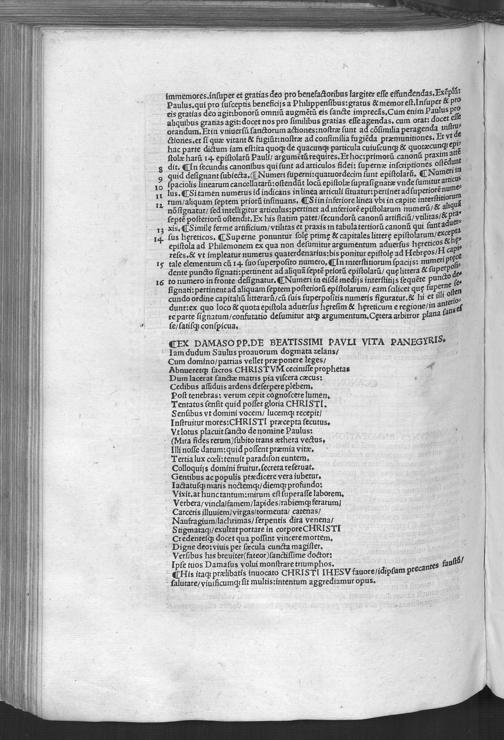 immemores. insuper et gratias deo pro benefactoribus largiter esse effundendas. Exẽplũ
Paulus. qui pro susceptis beneficijs a Philippensibus: gratus & memor est. Insuper & pro
eis gratias deo agit: bonorũ omniũ augmẽtũ eis sancte imprecãs. Cum enim Paulus pro
aliquibus gratias agit: docet nos pro similibus gratias esse agendas. cum orat: docet esse
orandum. Et in vniuersũ sanctorum actiones: nostræ sunt ad cõsimilia peragenda instru
ctiones. et si quæ vitant & fugiũt: nostræ ad consimilia fugiẽda præmunitiones. Et vt de
hac parte dictum iam est: ita quoq; de quacunq; particula cuiuscunq; & quotæcunq; epi
stolæ harũ 14 epistolarũ Pauli / argumẽta requires. Et hoc: primorũ canonũ praxim ante
8 dit. ¶In secundis canonibus qui sunt ad articulos fidei: supernæ inscriptiones ostẽdunt
9 quid designant subiecta. ¶Numeri superni: quatuordecim sunt epistolarũ. ¶Numeri in
10 spaciolis linearum cancellatarũ: ostendũt locũ epistolæ suprasignatæ vnde sumitur articu
11 lus. ¶Si tamen numerus id indicans in linea articuli situatur: pertinet ad superiorẽ nume
12 rum / aliquam septem priorũ insinuans. ¶Si in inferiore linea vbi in capite interstitiorum
nõ signatur / sed intelligitur articulus: pertinet ad inferiorẽ epistolarum numerũ / & aliquã
septẽ posteriorũ ostendit. Ex his statim patet / secundorũ canonũ artificiũ / vtilitas / & pra-
13 xis. ¶Simile ferme artificium / vtilitas et praxis in tabula tertiorũ canonũ qui sunt aduer-
14 sus hæreticos. ¶Superne ponuntur solæ primæ & capitales litteræ epistolarum / excepta
epistola ad Philemonem ex qua non desumitur argumentum aduersus hæreticos & hæ-
reses. & vt impleatur numerus quaternarius: bis ponitur epistola ad Hebræos / H capi-
15 tale elementum cũ 14 suo superposito numero. ¶In interstitiorum spacijs: numeri præce
dente puncto signati: pertinent ad aliquã septẽ priorũ epistolarũ / quę littera & superposi-
16 to numero in fronte designatur. ¶Numeri in eisdẽ medijs interstitijs sequẽte puncto de-
signati: pertinent ad aliquam septem posteriorũ epistolarum / eam scilicet quę superne se-
cundo ordine capitaliũ litterarũ / cũ suis superpositis numeris figuratur. & hi et illi osten
dunt: ex quo loco & quota epistola aduersus hæresim & hæreticum e regione / in anterio-
re parte signatum / confutatio desumitur atq; argumentum. Cętera arbitror plana satis es
se / satisq; conspicua.
¶EX DAMASO PP. DE BEATISSIMI PAVLI VITA PANEGYRIS.
Iam dudum Saulus procerum dogmata zelans /
Cum domino / patrias vellet præponere leges /
Abnueretq; sacros CHRISTVM cecinisse prophetas
Dum lacerat sanctæ matris pia viscera cæcus:
Cedibus assiduis ardens deserpere plebem.
Post tenebras: verum cepit cognoscere lumen.
Tentatus sensit quid posset gloria CHRISTI.
Sensibus vt domini vocem / lucemq; recepit /
Instruitur mores: CHRISTI præcepta secutus.
Vt lotus placuit sancto de nomine Paulus:
(Mira fides rerum) subito trans æthera vectus,
Illi nosse datum: quid possent præmia vitæ.
Tertia lux cœli: tenuit paradison euntem.
Colloquijs domini fruitur. secreta reseruat.
Gentibus ac populis prædicere vera iubetur.
Iactatusq; maris noctemq; / diemq; profundo:
Vixit. at hunc tantum: mirum est superasse laborem.
Verbera / vincla / famem / lapides / rabiemq; ferarum /
Carceris illuuiem / virgas / tormenta / catenas /
Naufragium / lachrimas / serpentis dira venena /
Stigmataq; / exultat portare in corpore CHRISTI
Credentesq; docet qua possint vincere mortem.
Digne deo: viuis per sæcula cuncta magister.
Versibus his breuiter / fateor / sanctissime doctor:
Ipse tuos Damasus volui monstrare triumphos.
¶His itaq; prælibatis inuocato CHRISTI IHESV fauore / idipsum precantes faustũ /
salutare / viuificumq; sit multis: intentum aggrediamur opus.